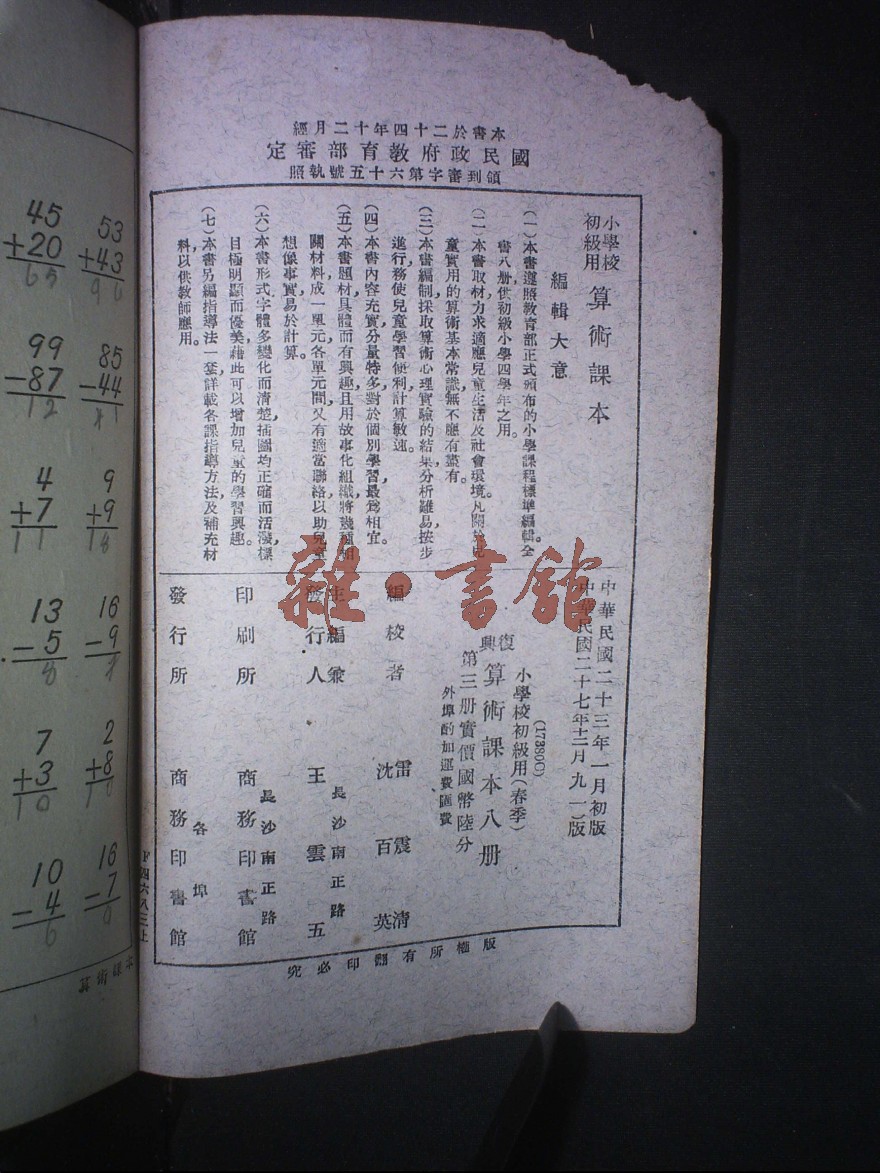 本書於二十四年十二月經
國民政府教育部審定
領到審字第六十五號執照
小學校
初級用
算術課本
編輯大意
(一)本書遵照教育部正式頒布的小學課程標準編輯,全
書八册,供初級小學四學年之用。
(二)本書取材力求適應兒童生活及社會環境,凡關於兒
童實用的算術基本常識,無不應有盡有。
(三)本書編制採取算術心理實驗的結果,分析難易,按步
進行,務使兒童學習便利,計算敏速。
(四)本書內容充實,分量特多,對於個別學習,最爲相宜。
(五)本書題材具體而有興趣,且用故事化組織,將幾種相
關材料成一單元,各單元間又有適當聯絡,以助兒童
想像事實,易於計算。
(六)本書形式字體多變化而清楚,插圖均正確而活潑,標
目極明顯而優美,藉此可以增加兒童的學習興趣。
(七)本書另編指導法一套,詳載各課指導方法及補充材
料,以供教師應用。
中華民國二十三年一月初版
中華民國二十七年十二月九一版
(17390C)
小學校初級用(春季)
復興算術課本八册
第三册實價國幣陸分
外埠酌加運費匯費
編校者 雷震清
沈百英
主編兼
發行人 王雲五
長沙南正路
印刷所 商務印書館
長沙南正路
發行所 商務印書館
各埠
版權所有翻印必究
F四六八三上
雜·書館
45 53
+20 +43
65 96
99 85
-87 -44
12
4 9
+7 +9
11 18
13 16
-5 -9
8
7 2
+3 +8
10 10
10 16
-4 -7
6
算術課本